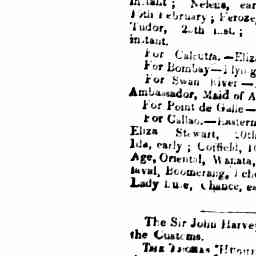 instant; Nelens, ear
15th February; Feroze,
Tudor, 25th inst.;
instant.
For Calcutta.—Eliz
For Bombay—Flying
For Swan River—
Ambassador, Maid of A
For Point de Galle—
For Callao.—Eastern
Eliza Stewart, 20th
Ida, early; Corfield, 1
Age, Oriental, Wanata,
Boomerang,
Lady Chance, ea
The Sir John Harvey
the Customs.
THE THOMAS